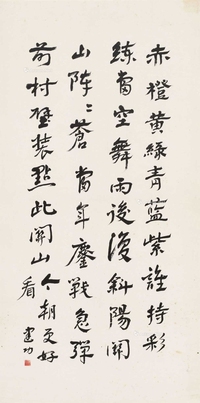 赤橙黄緑青藍紫誰持彩
練當空舞雨後復斜陽関
山陣〻蒼當年鏖戰急彈
前村壁裝點此関山今朝更好
看 建功